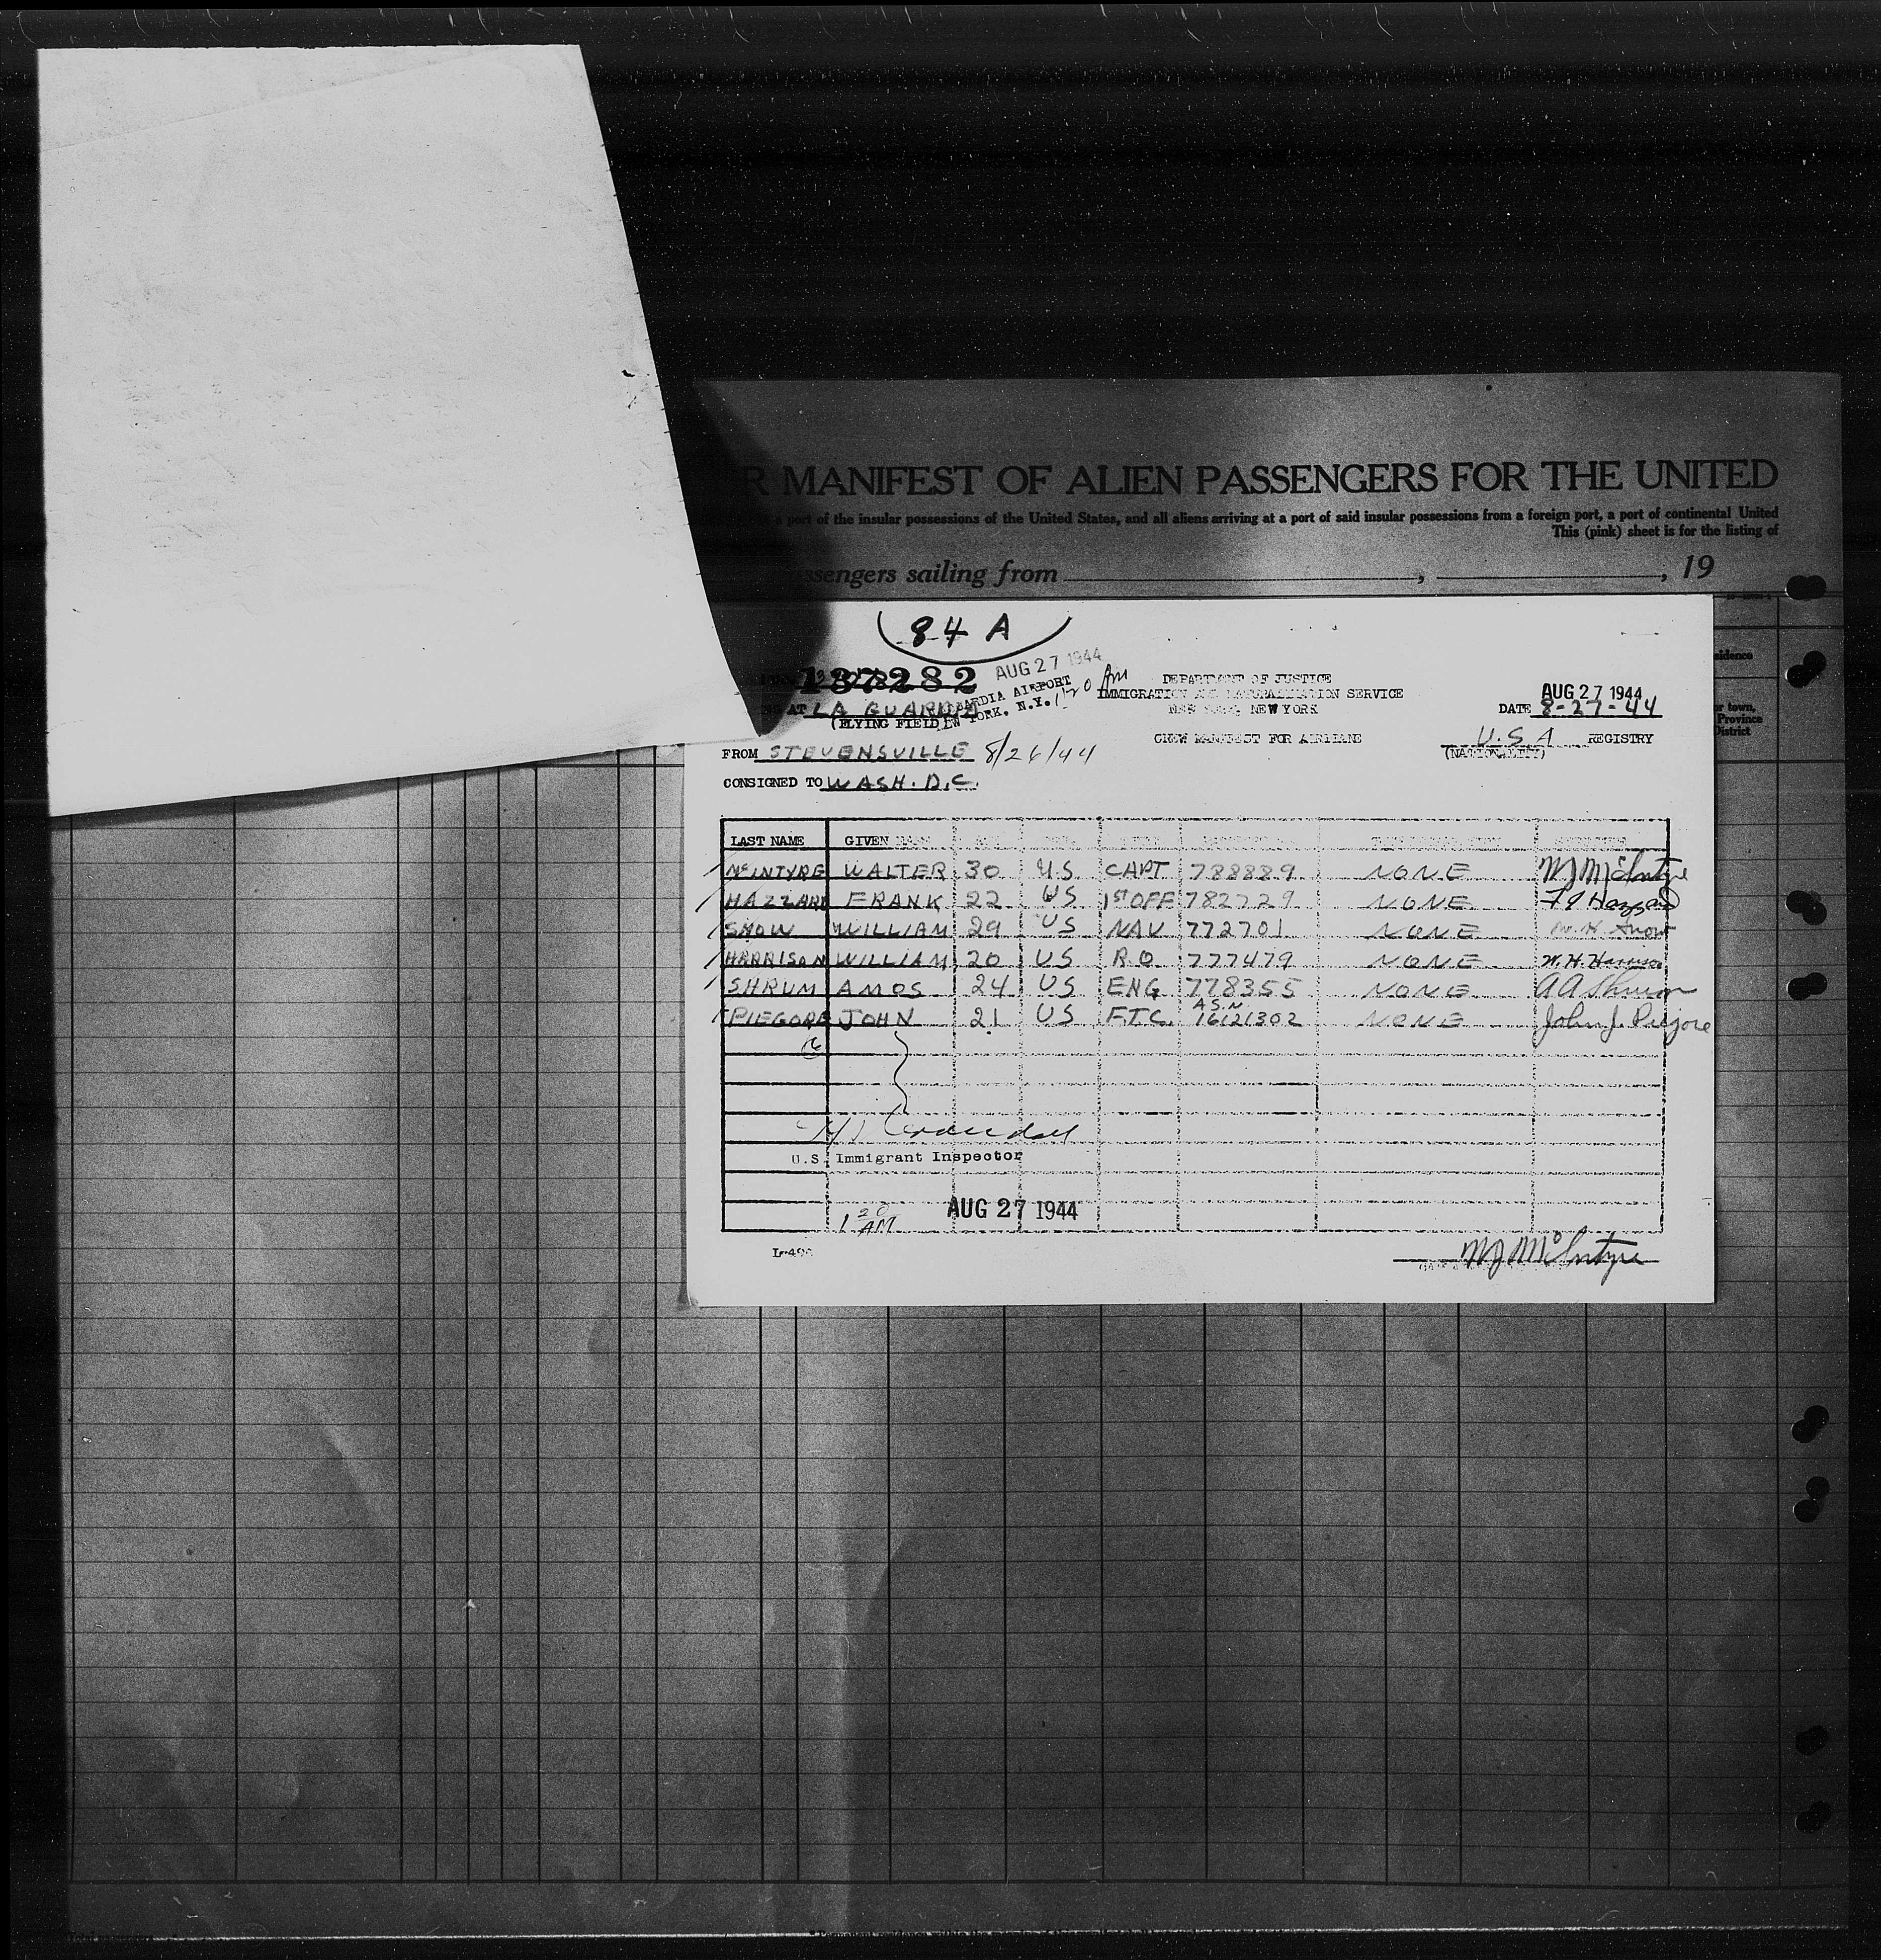 R MANIFEST OF ALIEN PASSENGERS FOR THE UNITED
a port of the insular possessions of the United States, and all aliens arriving at a port of said insular possessions from a foreign port, a port of continental United
This (pink) sheet is for the listing of
ssengers sailing from , , 19
84 A
137282 AUG 27 1944
AT LA GUARDIA
(FLYING FIELD)
AIRPORT
YORK, N.Y. 1 20 AM
DEPARTMENT OF JUSTICE
IMMIGRATION AND NATURALIZATION SERVICE
NEW YORK, NEW YORK
CREW MANIFEST FOR AIRPLANE
AUG 27 1944
DATE 8-27-44
U.S.A REGISTRY
(NATIONALITY)
FROM STEVENSVILLE 8/26/44
CONSIGNED TO WASH. D.C.
sidence
r town,
Province
District
LAST NAME GIVEN NAME
McINTYRE WALTER 30 US CAPT 788889 NONE WJ McIntyre
HAZZARD FRANK 22 US 1ST OFF 782729 NONE
SNOW WILLIAM 29 US NAV 772701 NONE W. H. Snow
HARRISON WILLIAM 20 US R.O. 777479 NONE W. H. Harrison
SHRUM AMOS 24 US ENG 778355 NONE AA Shrum
PIEGORE JOHN 21 US F.T.C. A.S.N. 16121302 NONE John J. Piegore
6
Crandall
U.S. Immigrant Inspector
1 20 AM AUG 27 1944
WJ McIntyre